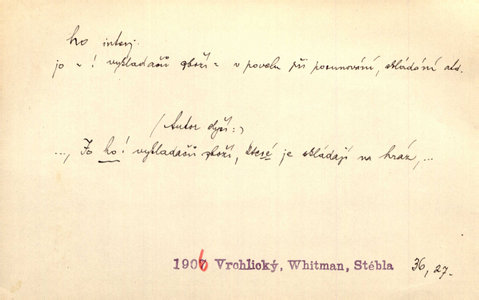 ho interj.
jo - ! vykladači zboží - v povelu při posunování, skládání atd.
(Autor slyší:)
..., Jo ho! vykladačů zboží, které je skládají na hráz, ...
1906 Vrchlický, Whitman, Stébla 36, 27.